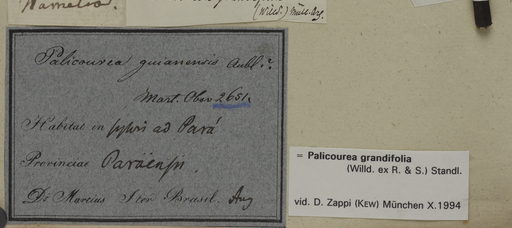 (Willd.) Müll. Arg.
Palicourea guianensis Aubl.
Mart. Obs. 2651.
Habitat in sylvis ad Pará
Provinciae Paraënsis.
Dr. Martius Iter Brasil. Aug
= Palicourea grandifolia
(Willd. ex R. & S.) Standl.
vid. D. Zappi (KEW) München X.1994